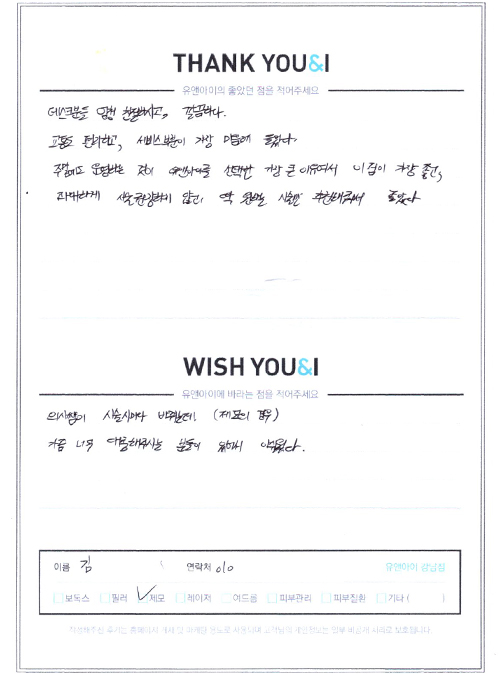 THANK YOU&I
유앤아이의 좋았던 점을 적어주세요
데스크분들 엄청 친절하시고, 깔끔하다.
교통도 편리하고, 서비스부분이 가장 마음에 들었다.
주말에도 운영하는 것이 유앤아이를 선택한 가장 큰 이유여서 이 점이 가장 좋고,
과대하게 시술권유하지 않고, 딱 원하는 시술만 추천해줘서 좋았다
WISH YOU&I
유앤아이에 바라는 점을 적어주세요
의사쌤이 시술시마다 바뀌는데 (제모의 경우)
가끔 너무 대충해주시는 분들이 있어서 아쉬웠다.
이름 김 연락처 010 유앤아이 강남점
보톡스 필러 제모 레이저 여드름 피부관리 피부질환 기타 ( )
작성해주신 후기는 홈페이지 게재 및 마케팅 용도로 사용되며 고객님의 개인정보는 일부 비공개 처리로 보호됩니다.